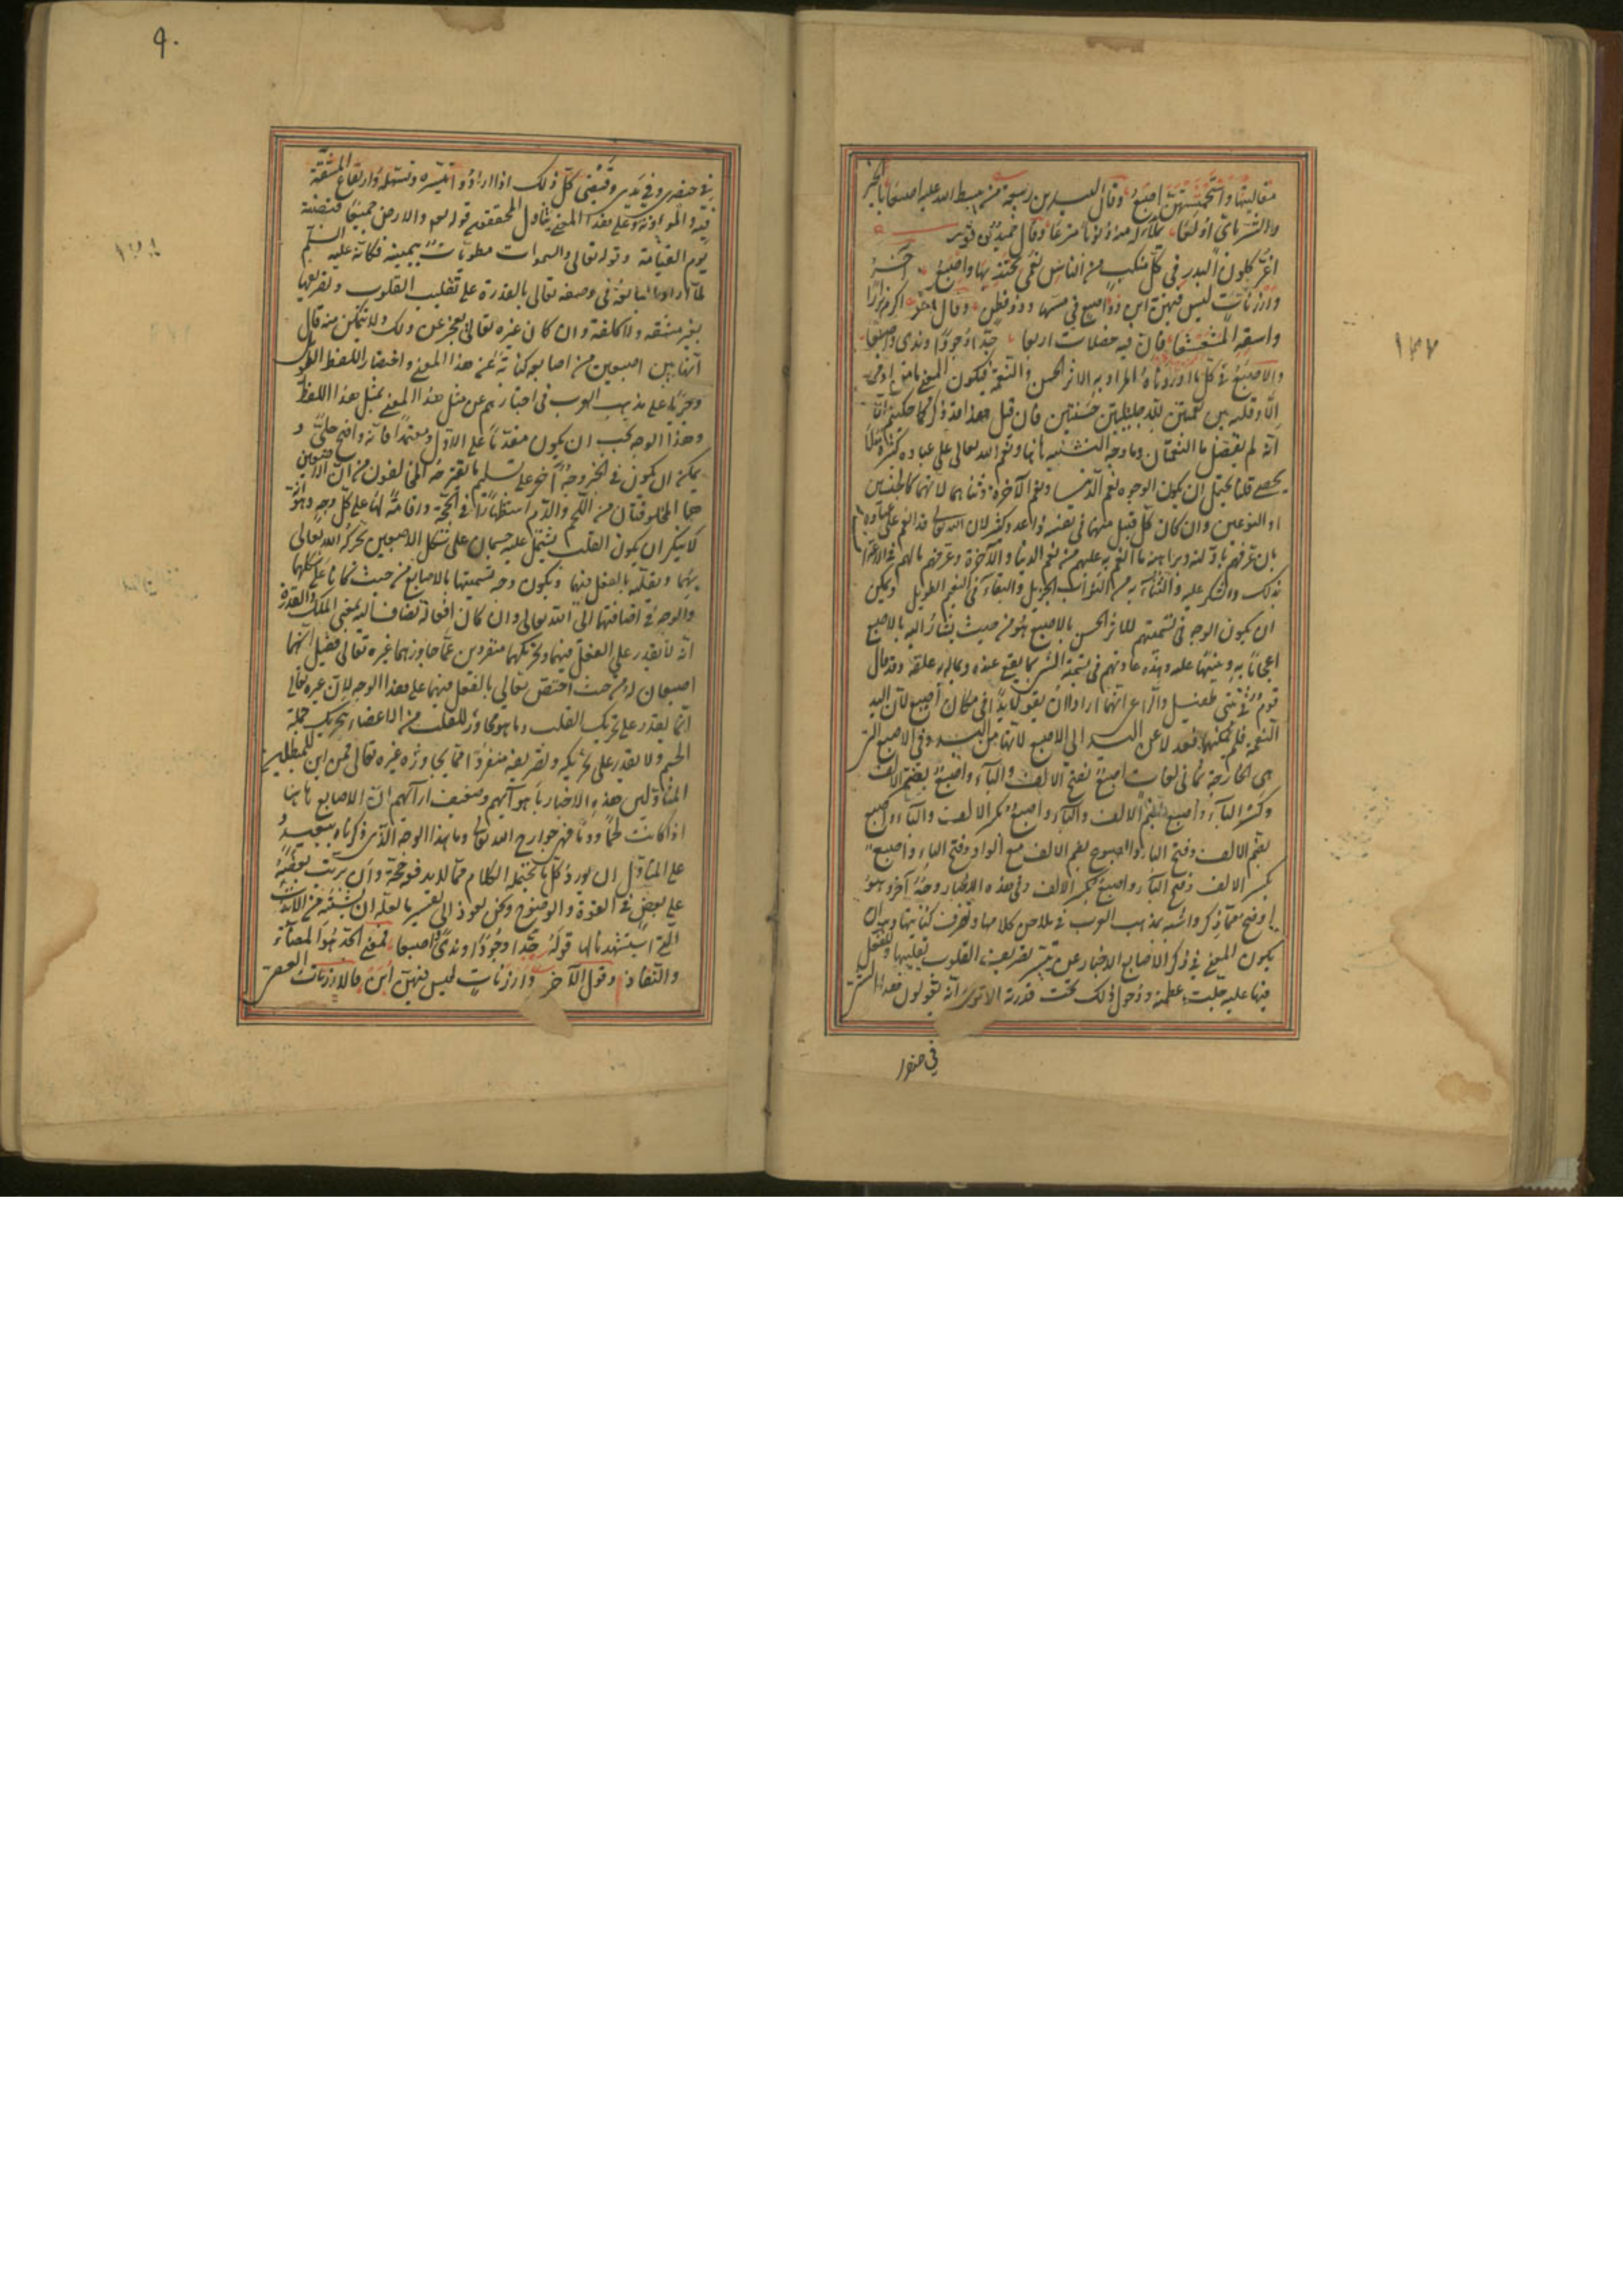 وقال لبيد بن ربيعة من يبسط الله عليه اصبعا بالخير
والشر باي اولعا يملأ له منه ذنوبا مترعا وقال حميد بن ثور
اغر كلون البدر في كل منكب من الناس نعمى يحتذيها واصبع آخر
وارزنات ليس فيهن ابن ذو اصبع في مسها وذو فطن وقال آخر اكرم نزارا
واسقه المشعشعا فان فيه خصلات اربعا جدا وجودا وندى واصبعا
والاصبع في كل ما اوردناه المراد به الاثر الحسن والنعمة فيكون المعنى ما من آدمي
الا وقلبه بين نعمتين لله جليلتين حسنتين فان قيل هذا قد ذكر كما حكيتم الا
انه لم يفصل ما النعمتان وما وجه التثنية هاهنا ونعم الله تعالى على عباده كثيرة لا
يحصى قلنا يحتمل ان يكون الوجوه نعم الدنيا ونعم الآخرة وثناهما لانهما كالجنسين
او النوعين وان كان كل قبيل منهما في نفسه ذا عدد وكثر لان الله تعالى قد انعم على عباده
بان عرفهم بادلته وبراهينه ما انعم به عليهم من نعم الدنيا والآخرة وعرفهم ما لهم في الاعتراف
بذلك والشكر عليه والثناء به من الثواب الجزيل والبقاء في النعيم الطويل ويمكن
ان يكون الوجه في تسميتهم للاثر الحسن بالاصبع هو من حيث يشار اليه بالاصبع
اعجابا به وتنبيها عليه وهذه عادتهم في تسمية الشيء بما يقع عنده وبما له به علقة وقد قال
قوم في بيتي طفيل والراعي انهما ارادا ان يقولا يدا في مكان اصبع لان اليد
النعمة فلم يمكنهما فعدلا عن اليد الى الاصبع لانها من اليد وفي الاصبع التي
هي الجارحة ثماني لغات اصبع بفتح الالف والباء واصبع بفتح الالف
وكسر الباء واصبع بضم الالف والباء واصبع بكسر الالف والباء واصبع
بضم الالف وفتح الباء واصبوع بضم الالف مع الواو وفتح الباء واصبع
بكسر الالف وفتح الباء واصبع بكسر الالف وفي هذه الاخبار وجه آخر وهو
اوضح مما ذكر واشبه بمذهب العرب في ملاحن كلامها وتصرف كناياتها وهو ان
يكون المعنى في ذكر الاصابع الاخبار عن تيسر تصريف القلوب وتقليبها والفعل
فيها عليه جلت عظمته ودخول ذلك تحت قدرته الا ترى انهم يقولون هذا الشيء
في خنصري
١٣٧
٩٠
في خنصري وفي يدي وقبضتي كل ذلك اذا ارادوا تيسيره وتسهله وارتفاع المشقة
فيه والمؤونة وعلى هذا المعنى يتاول المحققون قوله تعالى والارض جميعا قبضته
يوم القيامة وقوله تعالى والسموات مطويات بيمينه فكانه عليه السلم
لما اراد المبالغة في وصفه تعالى بالقدرة على تقليب القلوب وتصريفها
بغير مشقة ولا كلفة وان كان غيره تعالى يعجز عن ذلك ولا يتمكن منه قال
انها بين اصبعين من اصابعه كناية عن هذا المعنى واختصار اللفظ الطويل
وجريا على مذهب العرب في اخبارهم عن مثل هذا المعنى بمثل هذا اللفظ
وهذا الوجه يجب ان يكون مقدما على الاول ومعتمدا فانه واضح جلي و
يمكن ان يكون في الخبر وجه آخر على تسليم ما يقترحه المخالفون من ان الاصبعين
هما المخلوقتان من اللحم والدم استظهارا في الحجة واقامة لها على كل وجه وهو انه
لا ينكر ان يكون القلب يشتمل عليه جسمان على شكل الاصبعين يحركه الله تعالى
بهما ويقلبه بالفعل فيهما ويكون وجه تسميتهما بالاصابع من حيث كانا على شكلهما
والوجه في اضافتهما الى الله تعالى وان كان افعاله تضاف اليه بمعنى الملك والقدرة
انه لا يقدر على الفعل فيهما وتحريكهما منفردين عما جاورهما غيره تعالى فقيل انهما
اصبعان له من حيث اختص تعالى بالفعل فيهما على هذا الوجه لان غيره تعالى
انما يقدر على تحريك القلب وما هو مجاور للقلب من الاعضاء بتحريك جملة
الجسم ولا يقدر على تحريكه وتصريفه منفردا مما يجاوره غيره تعالى فمن اين للمبطلين
المتاولين هذه الاخبار باهوائهم وضعيف ارائهم ان الاصابع هاهنا
اذا كانت لحما ودما فهي جوارح الله تعالى وما هذا الوجه الذي ذكرناه ببعيد و
على المتاول ان يورد كل ما يحتمله الكلام مما لا يدفعه حجة وان ترتب بعضه
على بعض في القوة والوضوح ونحن نعود الى تفسير ما لعله ان يشتبه من الابيات
التي استشهدنا بها قوله جدا وجودا وندى واصبعا فمعنى الجد هو المضاء
والنفاذ وقول الآخر وارزنات ليس فيهن ابن فالارزنات العصي